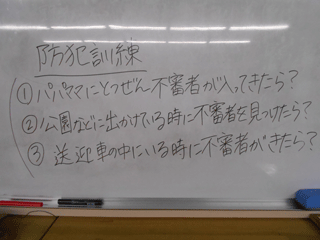 防犯訓練
① パパママにとつぜん不審者が入ってきたら？
② 公園などに出かけている時に不審者を見つけたら？
③ 送迎車の中にいる時に不審者がきたら？